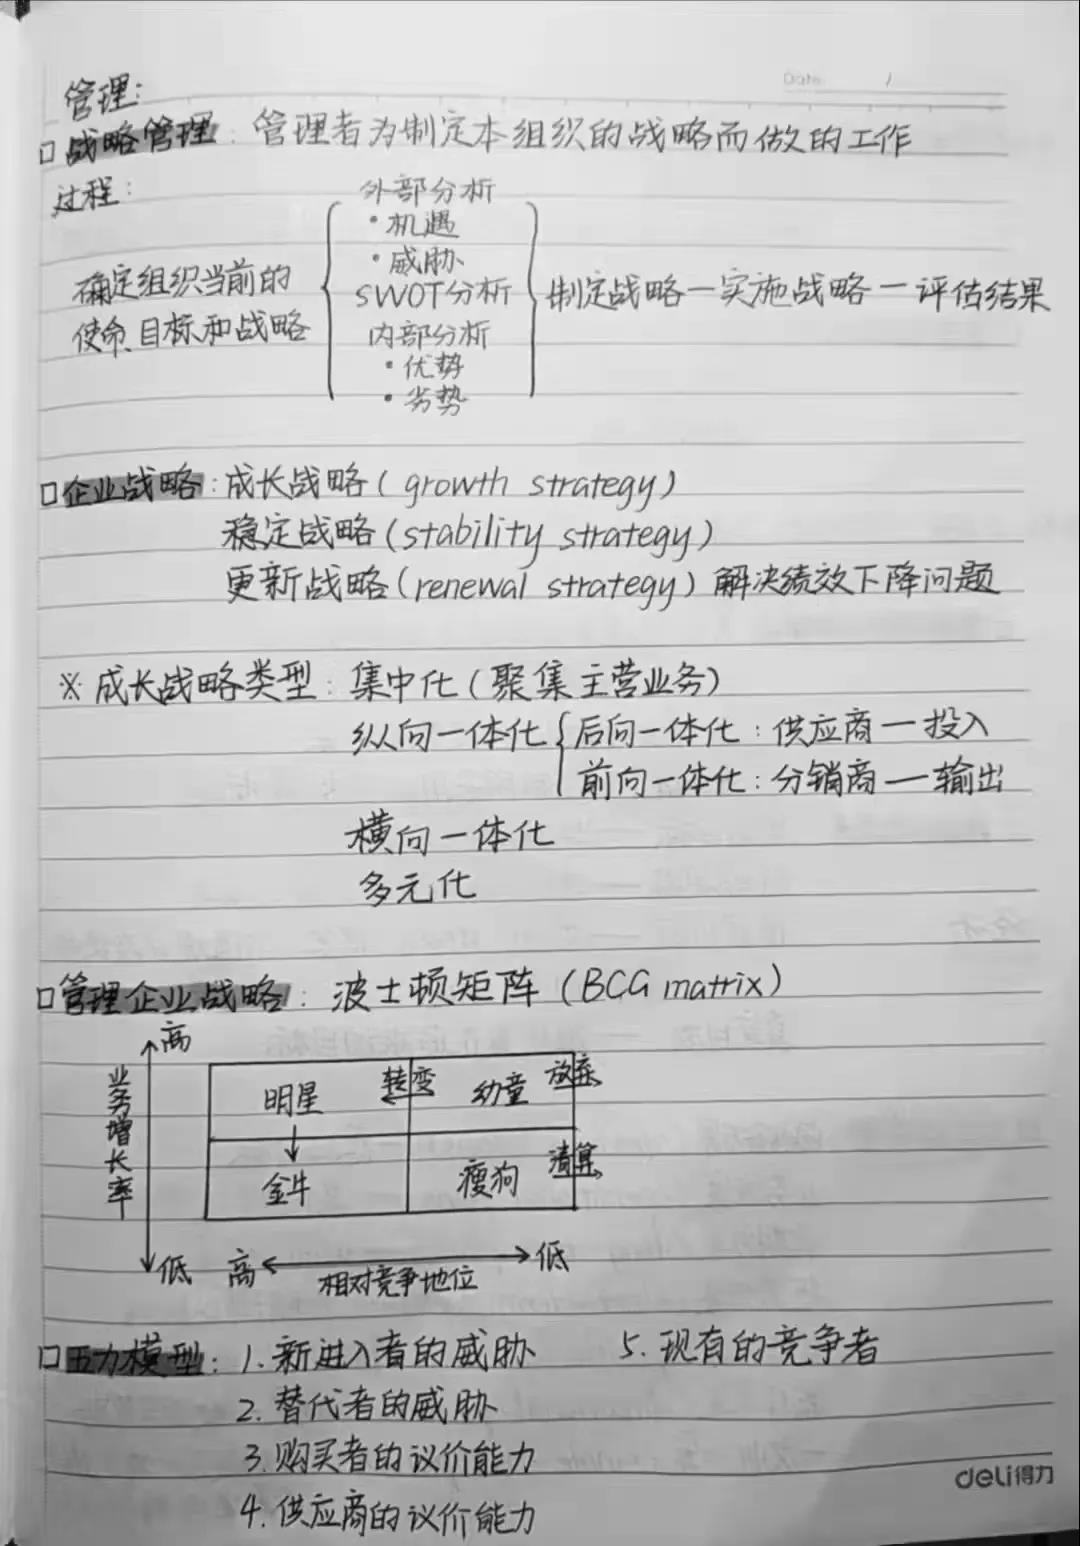 Date /
管理:
□战略管理: 管理者为制定本组织的战略而做的工作
过程:
外部分析
•机遇
•威胁
SWOT分析
内部分析
•优势
•劣势
确定组织当前的
使命、目标和战略
制定战略—实施战略—评估结果
□企业战略: 成长战略(growth strategy)
稳定战略(stability strategy)
更新战略(renewal strategy) 解决绩效下降问题
※成长战略类型: 集中化(聚集主营业务)
纵向一体化{后向一体化: 供应商—投入
前向一体化: 分销商—输出
横向一体化
多元化
□管理企业战略: 波士顿矩阵(BCG matrix)
高
业务增长率
明星 转变 幼童 放弃
金牛 瘦狗 清算
低 高 相对竞争地位 低
□五力模型: 1.新进入者的威胁 5.现有的竞争者
2.替代者的威胁
3.购买者的议价能力
4.供应商的议价能力
deli得力